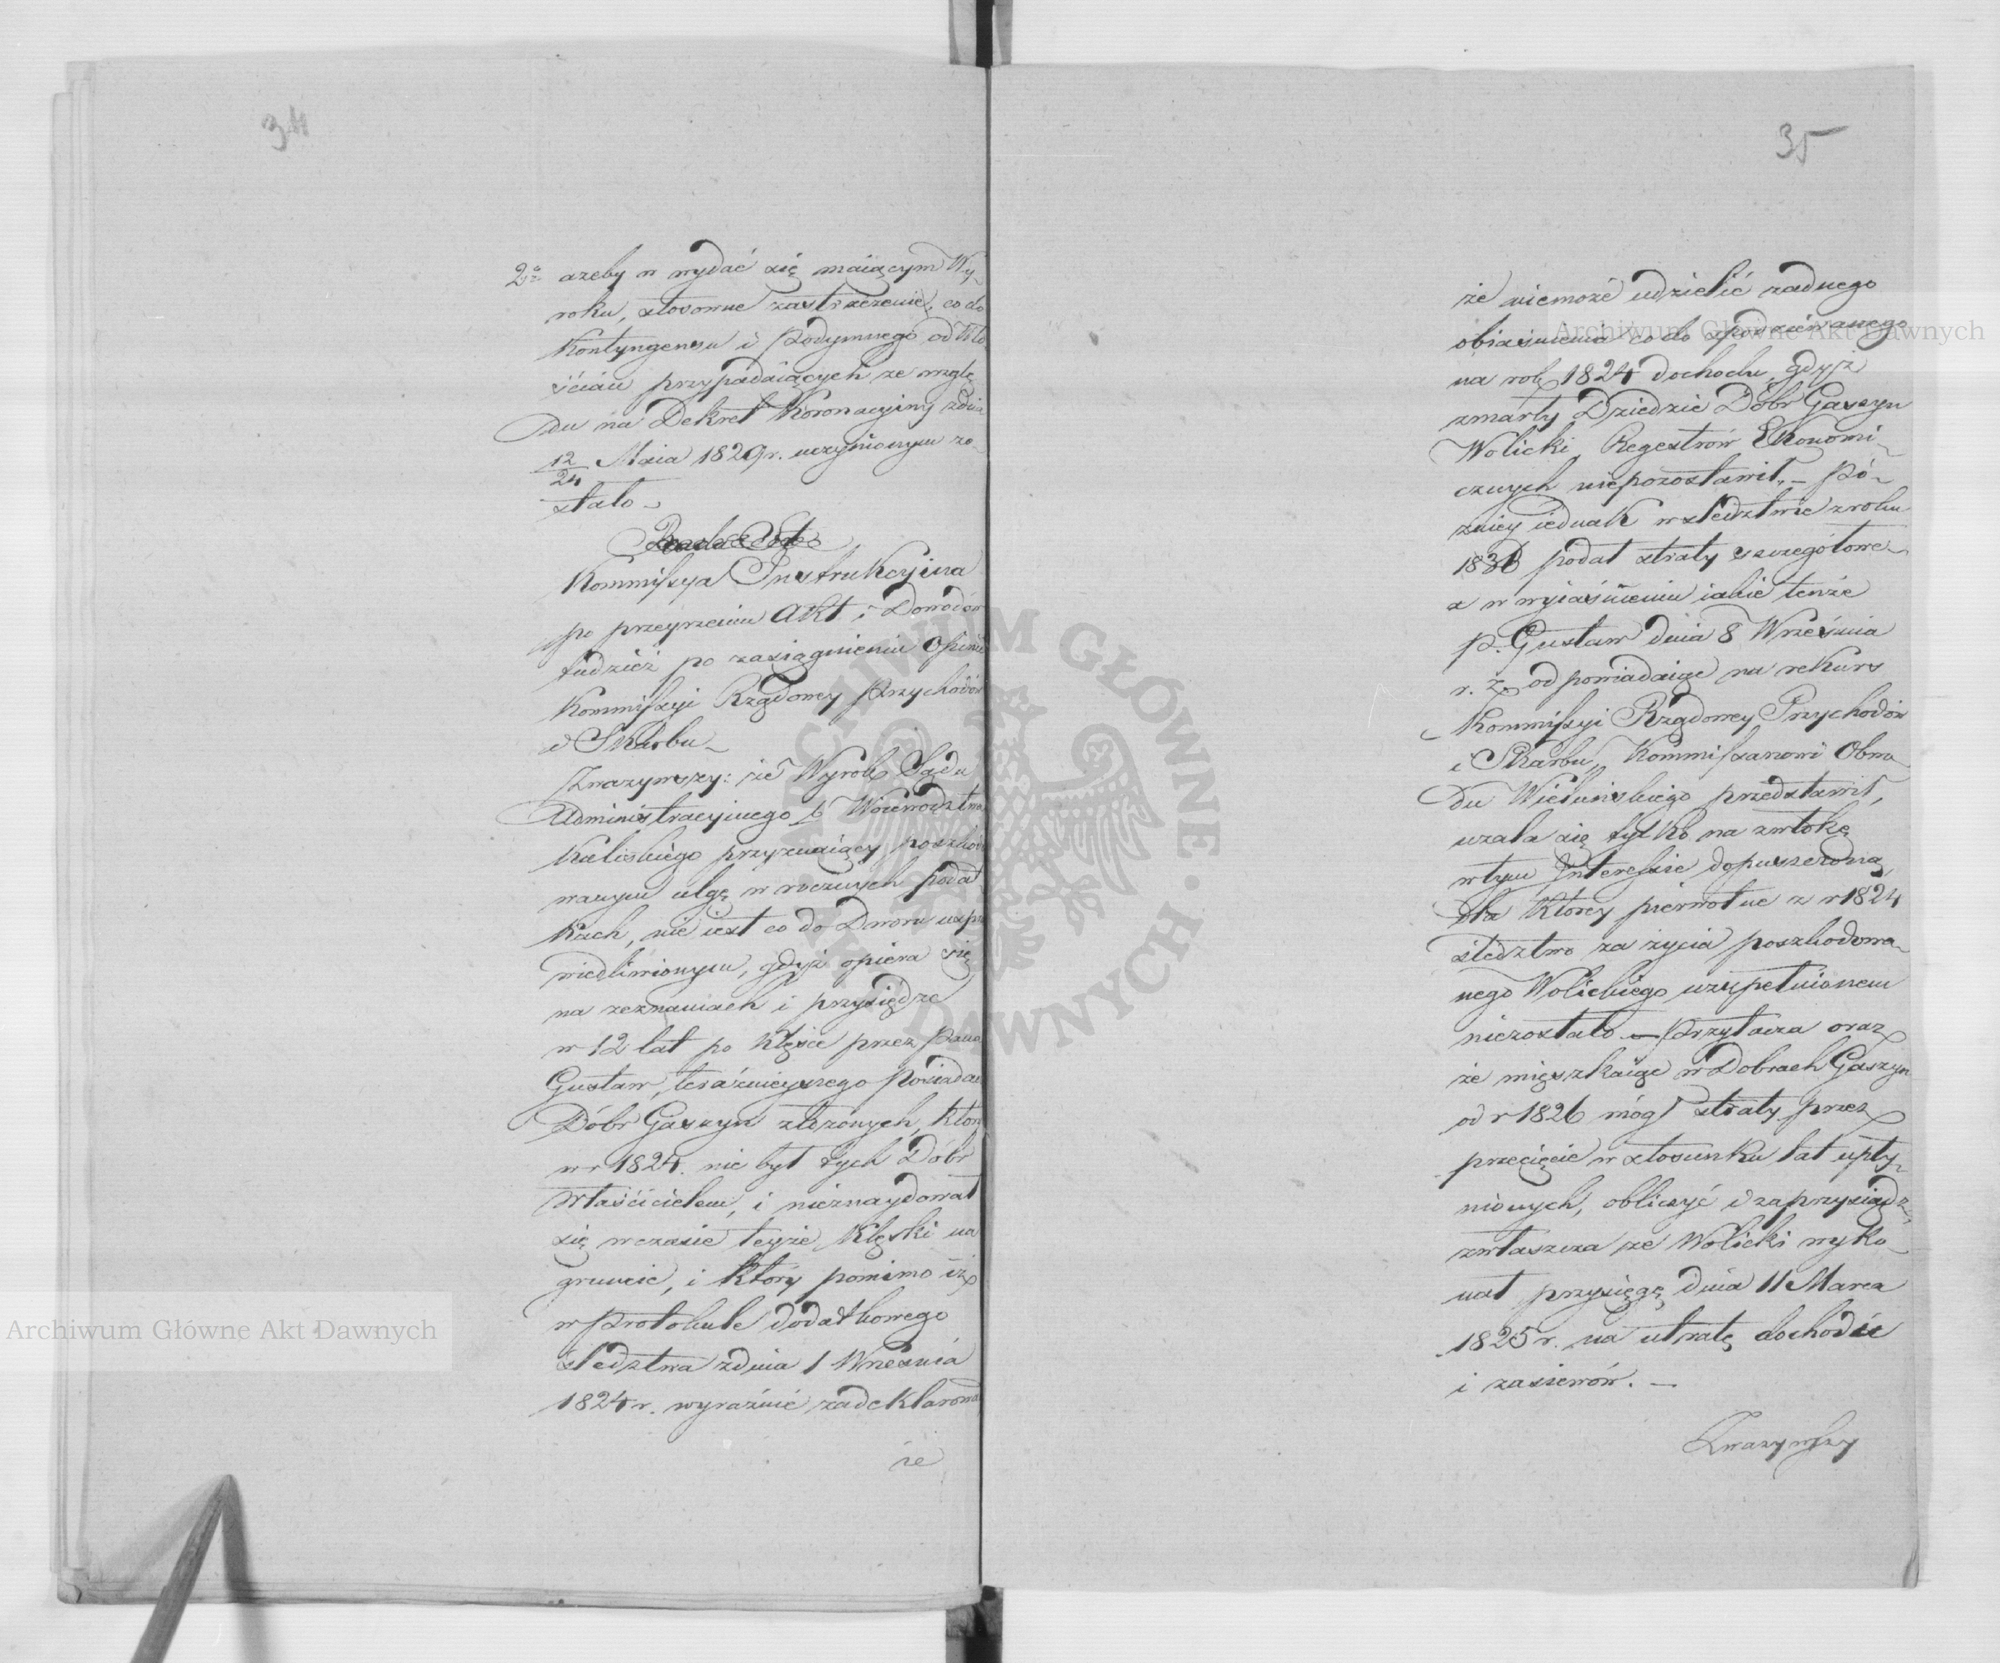 34
2o ażeby w wydać się maiącym Wy-
roku, stosowne zastrzeżenie, co do
Kontyngensu i Podymnego od Wło
ścian przypadaiących ze wzglę
du na Dekret Koronacyiny zdnia
12/24 Maia 1829 r. uczynionym zo-
stało -
Kommissya Instrukcyina
po przeyrzeniu Akt i Dowodów
tudzież po zasiągnieniu Opinii
Kommissyi Rządowey Przychodów
i Skarbu -
Zważywszy: że Wyrok Sądu
Administracyinego b Woiewództwa
Kaliskiego przyznaiący poszkodo
wanym ulgę w rocznych podat
kach, nie iest co do Dworu uspra
wiedliwionym, gdyż opiera się
na zeznaniach i przysiędze
w 12 lat po klęsce przez Pana
Gustaw, teraźnieyszego Posiadacza
Dóbr Gaszyn złożonych, który
w r 1824. nie był tych Dóbr
Właścicielem, i nieznaydował
się wczasie teyże klęski na
gruncie, i który pomimo iż
w Protokule dodatkowego
śledztwa zdnia 1 Września
1824 r. wyraźnie zadeklarował
że
35
że niemoże udzielić żadnego
obiaśnienia co do spodziewanego
na rok 1824 dochodu, gdyż
zmarły Dziedzic Dóbr Gaszyn
Wolicki Regestrów Ekonomi-
cznych niepozostawił, - pó-
źniey iednak w śledztwie z roku
1836 podał straty szczegółowe -
a w wyiaśnieniu iakie tenże
P. Gustaw dnia 8 Września
r. z. odpowiadaiąc na rekurs
Kommissyi Rządowey Przychodów
i Skarbu, Kommissarzowi Obwo
du Wieluńskiego przedstawił,
użala się tylko na zwłokę
wtym Interessie dopuszczoną,
dla którey pierwotne z r 1824
śledztwo za życia poszkodowa-
nego Wolickiego uzupełnionem
niezostało - Przytacza oraz
że mięszkaiąc w Dobrach Gaszyn
od r 1826 mógł straty przez
przecięcie w stosunku lat upły-
nionych, obliczyć i zaprzysiądz,
zwłaszcza że Wolicki wyko
nał przysięgę dnia 11 Marca
1825 r. na utratę dochodu
i zasiewów. -
Zważywszy
Archiwum Główne Akt Dawnych
Archiwum Główne Akt Dawnych
ARCHIWUM GŁÓWNE AKT DAWNYCH